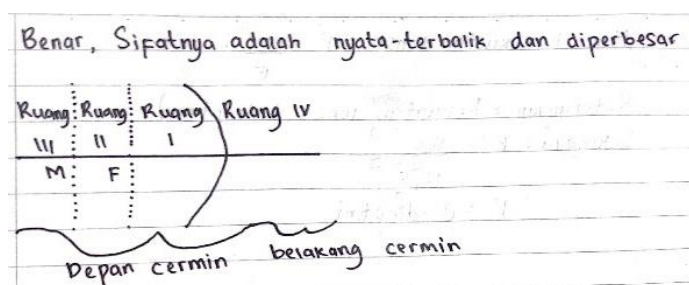 Benar, Sifatnya adalah nyata-terbalik dan diperbesar
Ruang Ruang Ruang Ruang IV
III II I
M F
Depan cermin belakang cermin